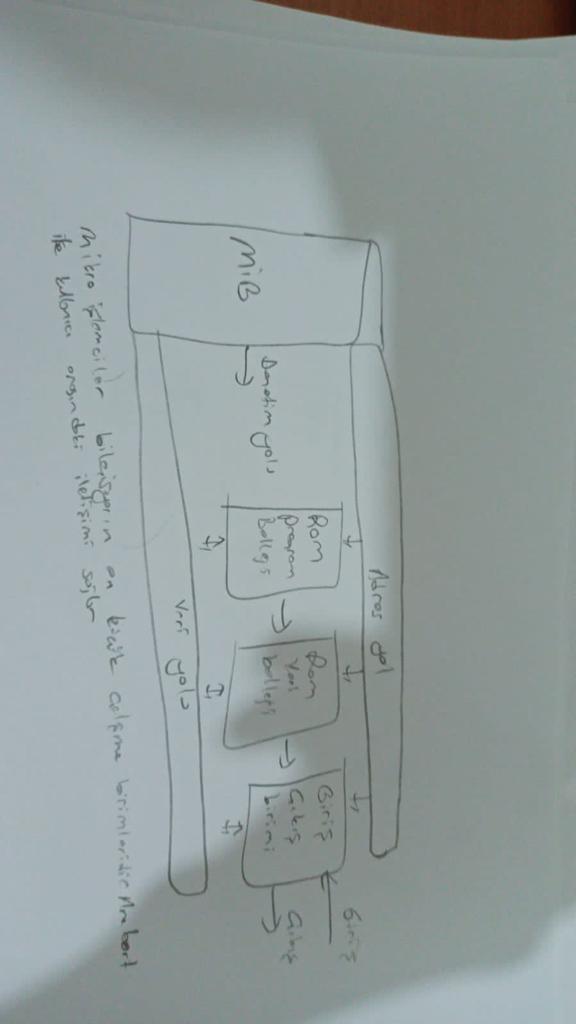 Adres yol
Giriş
Rom
program
Bellegi
Rom
Veri
bellegi
Giriş
Çıkış
birimi
Çıkış
Denetim yolu
MiB
Veri yolu
mikro işlemciler bilgisyarın en küçük çalışma birimleridir Ana kart
ile kullanıcı arasındaki iletişimi sağlar